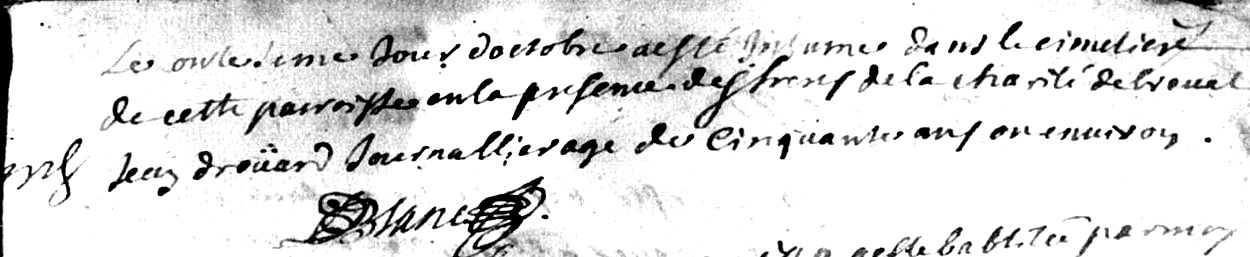 Le onziesme Jour doctobre a esté Inhumé dans le cimetiere
de cette parroisse en la presence des freres de la charité de
Jean droüard Journallier agé de Cinquante ans ou environ .
Blanc
a esté babtisée par moy